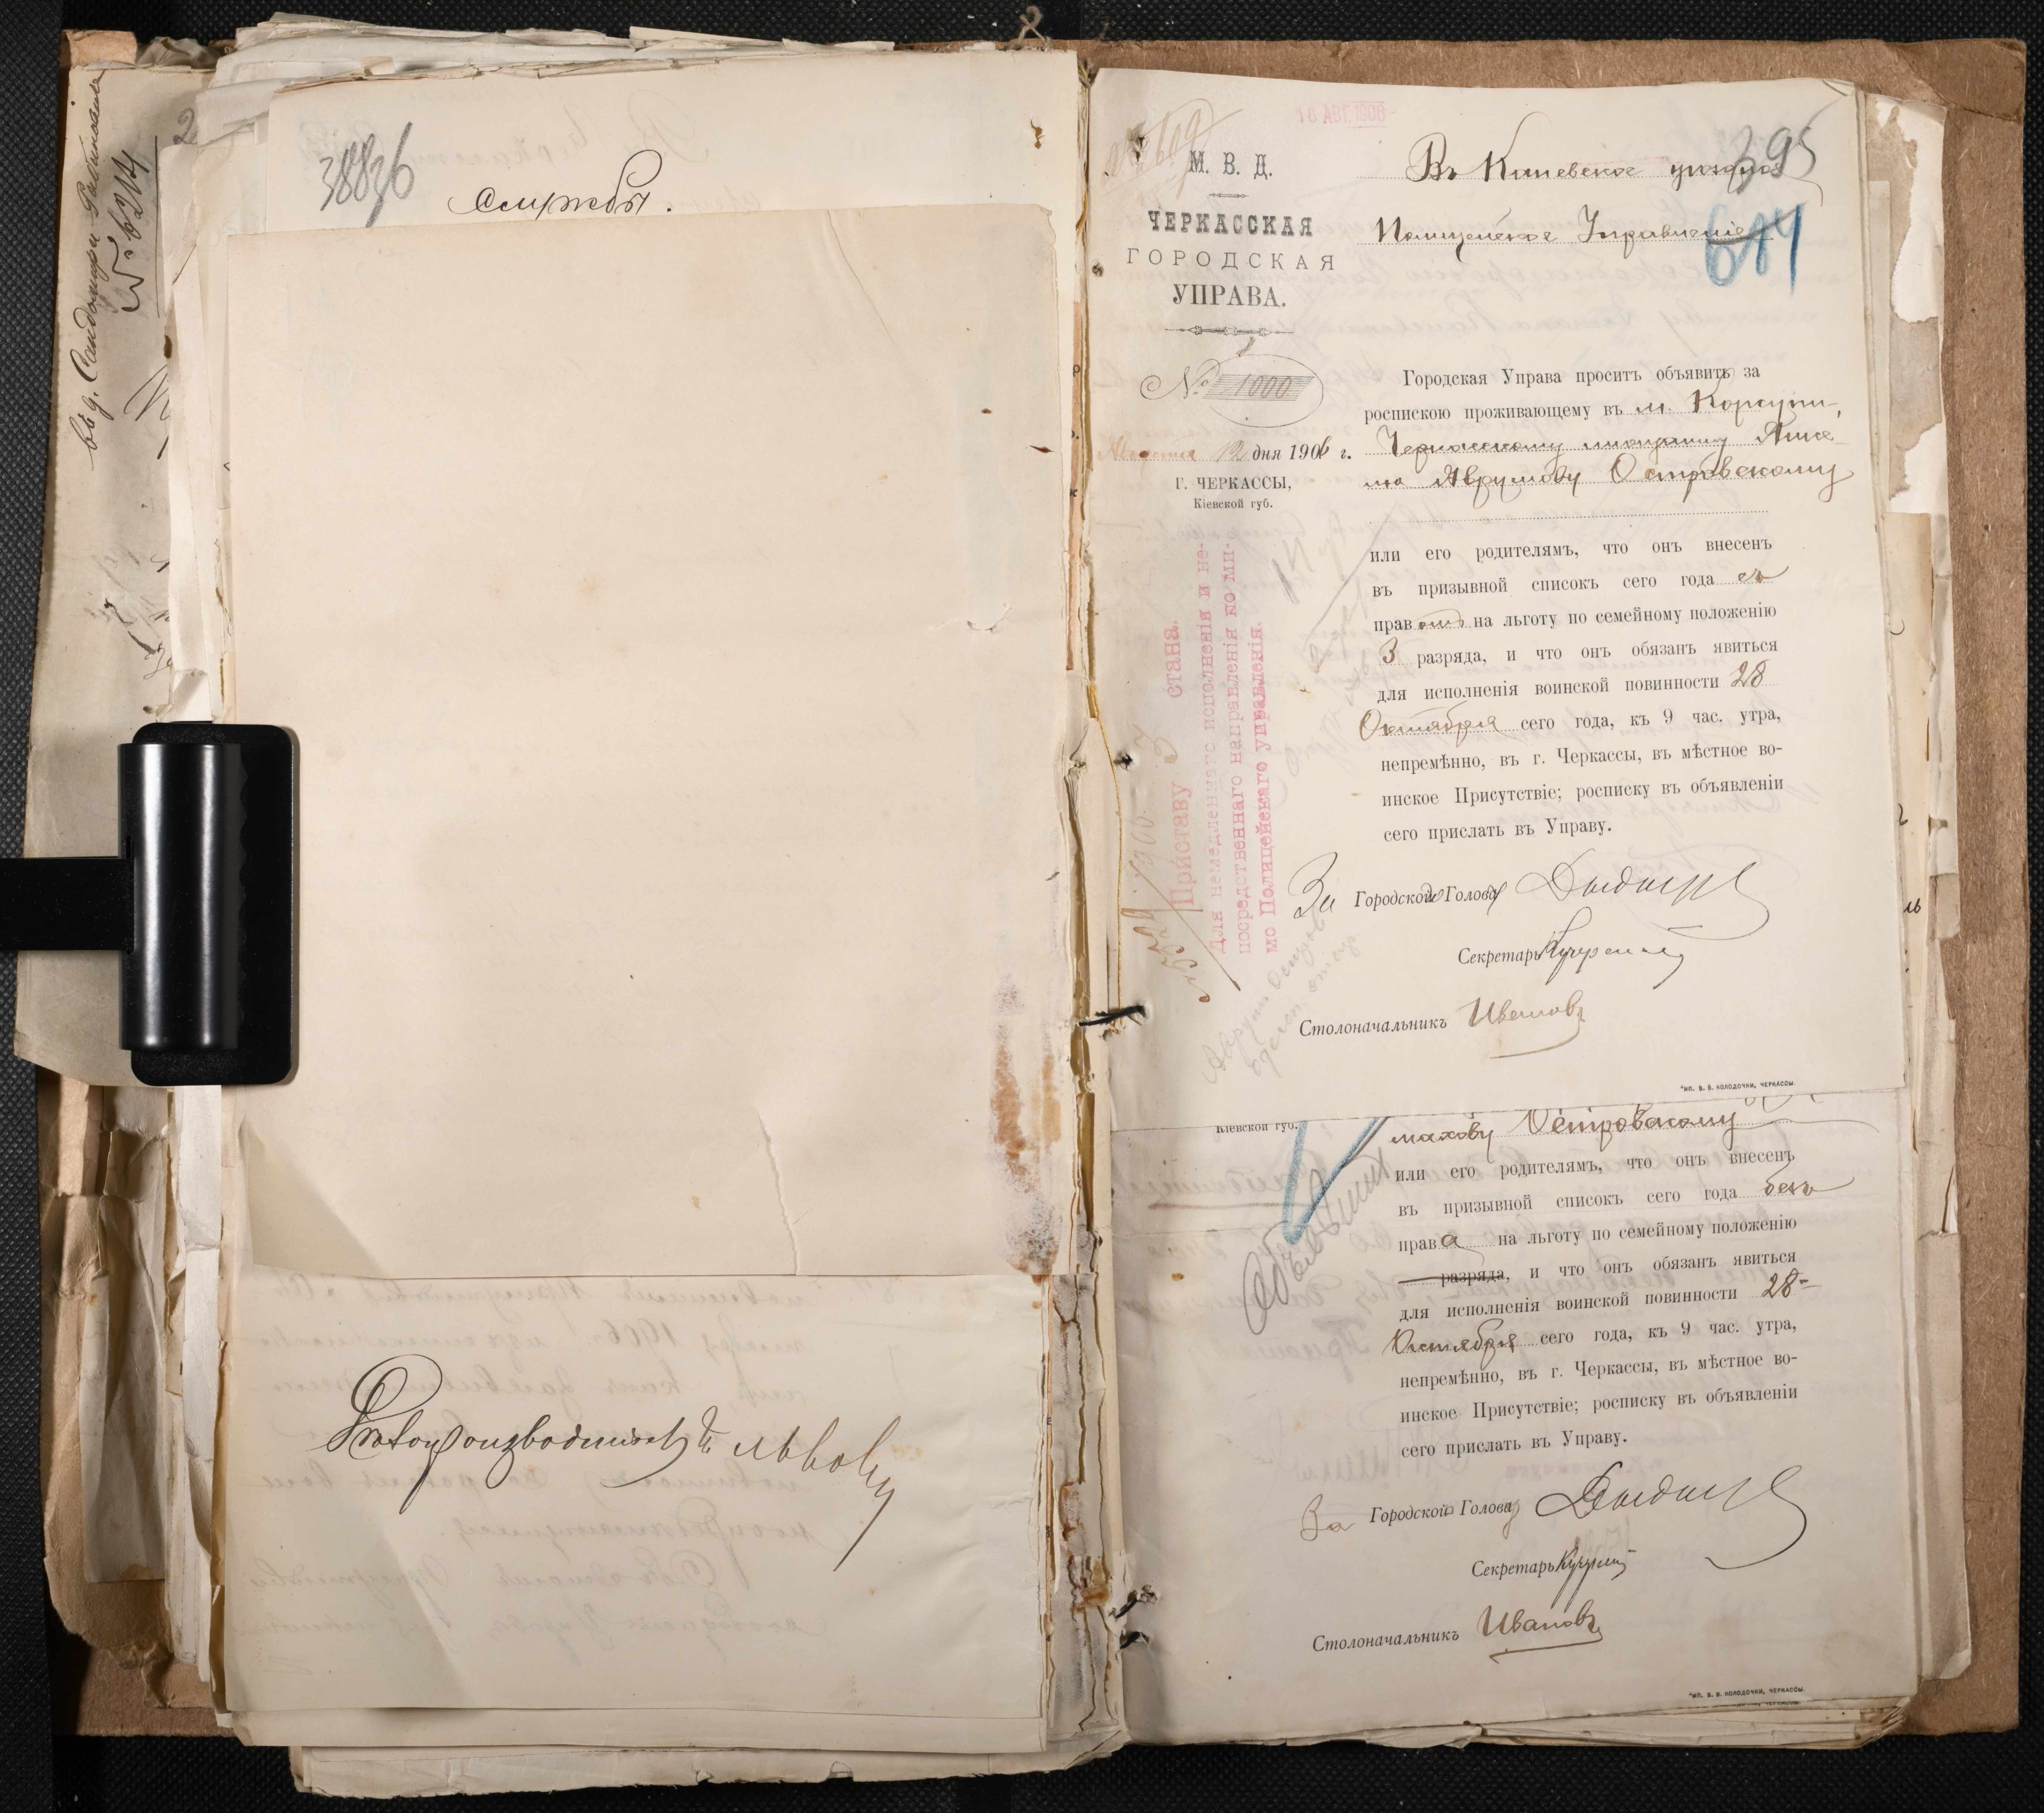 въ г. Сандомири
№ 6214
38836
службы.
Дѣлопроизводитель
16 АВГ. 1906
395
М. В. Д.
ЧЕРКАССКАЯ
ГОРОДСКАЯ
УПРАВА.
№ 1000
Августа 12 дня 1906 г.
Г. ЧЕРКАССЫ,
Кіевской губ.
Въ Каневское уѣздное
Полицейское Управленіе
Городская Управа проситъ объявить за
роспискою проживающему въ м. Корсуни,
Черкасскому мѣщанину
Аврумову Островскому
или его родителямъ, что онъ внесенъ
въ призывной списокъ сего года съ
правомъ на льготу по семейному положенію
3 разряда, и что онъ обязанъ явиться
для исполненія воинской повинности 28
Октября сего года, къ 9 час. утра,
непремѣнно, въ г. Черкассы, въ мѣстное во-
инское Присутствіе; росписку въ объявленіи
сего прислать въ Управу.
За Городского Голову
Секретарь
Столоначальникъ Ивановъ
Тип. В. В. КОЛОДОЧКИ, ЧЕРКАССЫ.
Приставу 3 стана.
Для немедленнаго исполненія и не-
посредственнаго направленія по ми-
мо Полицейскаго управленія.
Кіевской губ.
Островскому
или его родителямъ, что онъ внесенъ
въ призывной списокъ сего года безъ
права на льготу по семейному положенію
разряда, и что онъ обязанъ явиться
для исполненія воинской повинности 28
Октября сего года, къ 9 час. утра,
непремѣнно, въ г. Черкассы, въ мѣстное во-
инское Присутствіе; росписку въ объявленіи
сего прислать въ Управу.
За Городской Голова
Секретарь
Столоначальникъ Ивановъ
Тип. В. В. КОЛОДОЧКИ, ЧЕРКАССЫ.